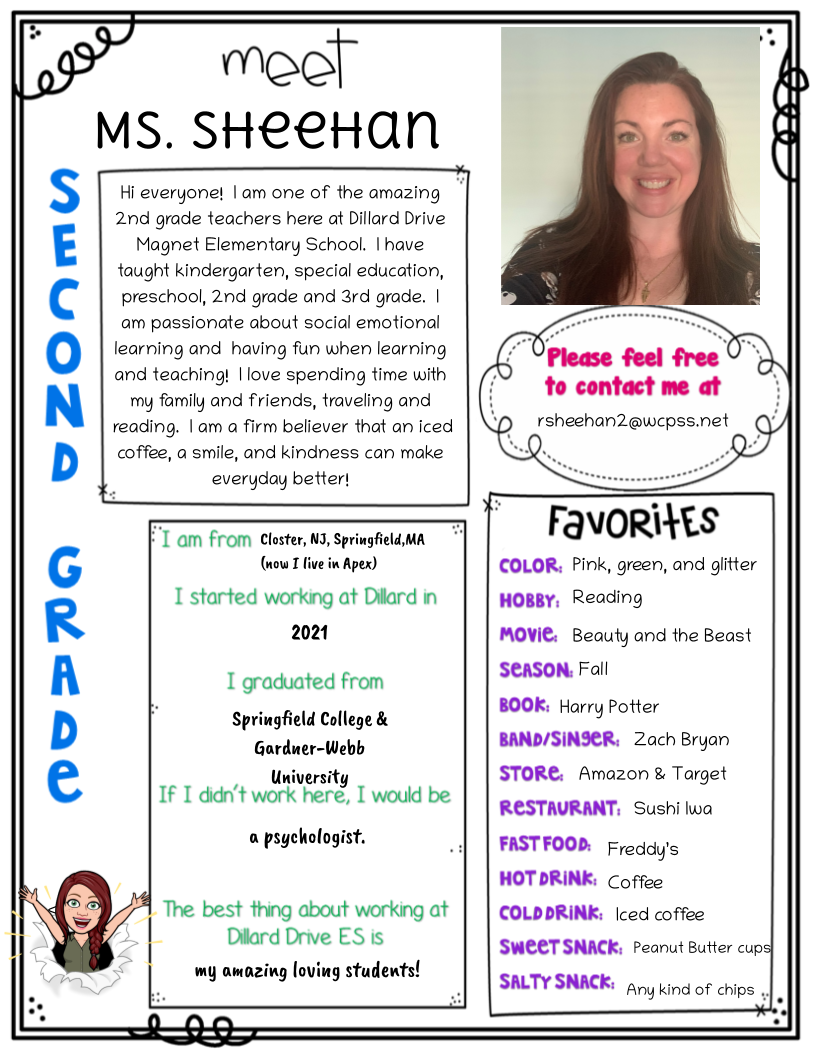 meet
MS. SHeeHan
SECOND GRADe
Hi everyone! I am one of the amazing
2nd grade teachers here at Dillard Drive
Magnet Elementary School. I have
taught kindergarten, special education,
preschool, 2nd grade and 3rd grade. I
am passionate about social emotional
learning and having fun when learning
and teaching! I love spending time with
my family and friends, traveling and
reading. I am a firm believer that an iced
coffee, a smile, and kindness can make
everyday better!
Please feel free
to contact me at
rsheehan2@wcpss.net
I am from Closter, NJ, Springfield,MA
(now I live in Apex)
I started working at Dillard in
2021
I graduated from
Springfield College &
Gardner-Webb
University
If I didn't work here, I would be
a psychologist.
The best thing about working at
Dillard Drive ES is
my amazing loving students!
FAVORITES
COLOR: Pink, green, and glitter
HOBBY: Reading
MOVIE: Beauty and the Beast
SEASON: Fall
BOOK: Harry Potter
BAND/SINGER: Zach Bryan
STORE: Amazon & Target
RESTAURANT: Sushi Iwa
FAST FOOD: Freddy's
HOT DRINK: Coffee
COLD DRINK: Iced coffee
SWEET SNACK: Peanut Butter cups
SALTY SNACK: Any kind of chips